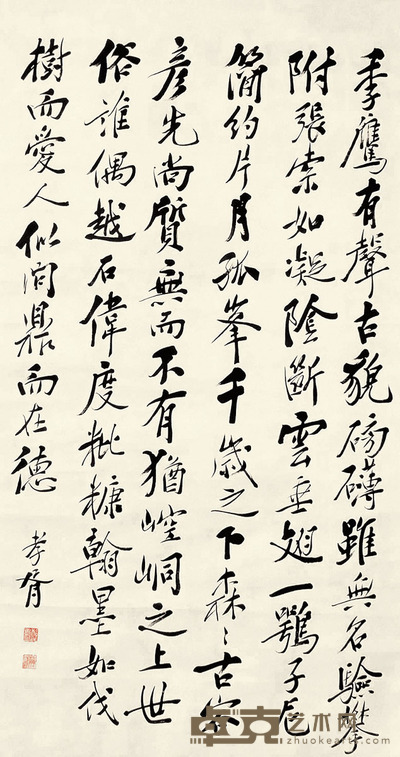 季鷹有聲古貌磅礴雖無名驗攀
附張索如凝陰斷雲垂翅一鶚子尼
簡約片月孤峯千歲之下森〻古容
彦先尚質無而不有猶崆峒之上世
俗誰偶越石偉度粃糠翰墨如伐
樹而愛人似問鼎而在德
孝胥
卓克艺术网
zhuokearts.com